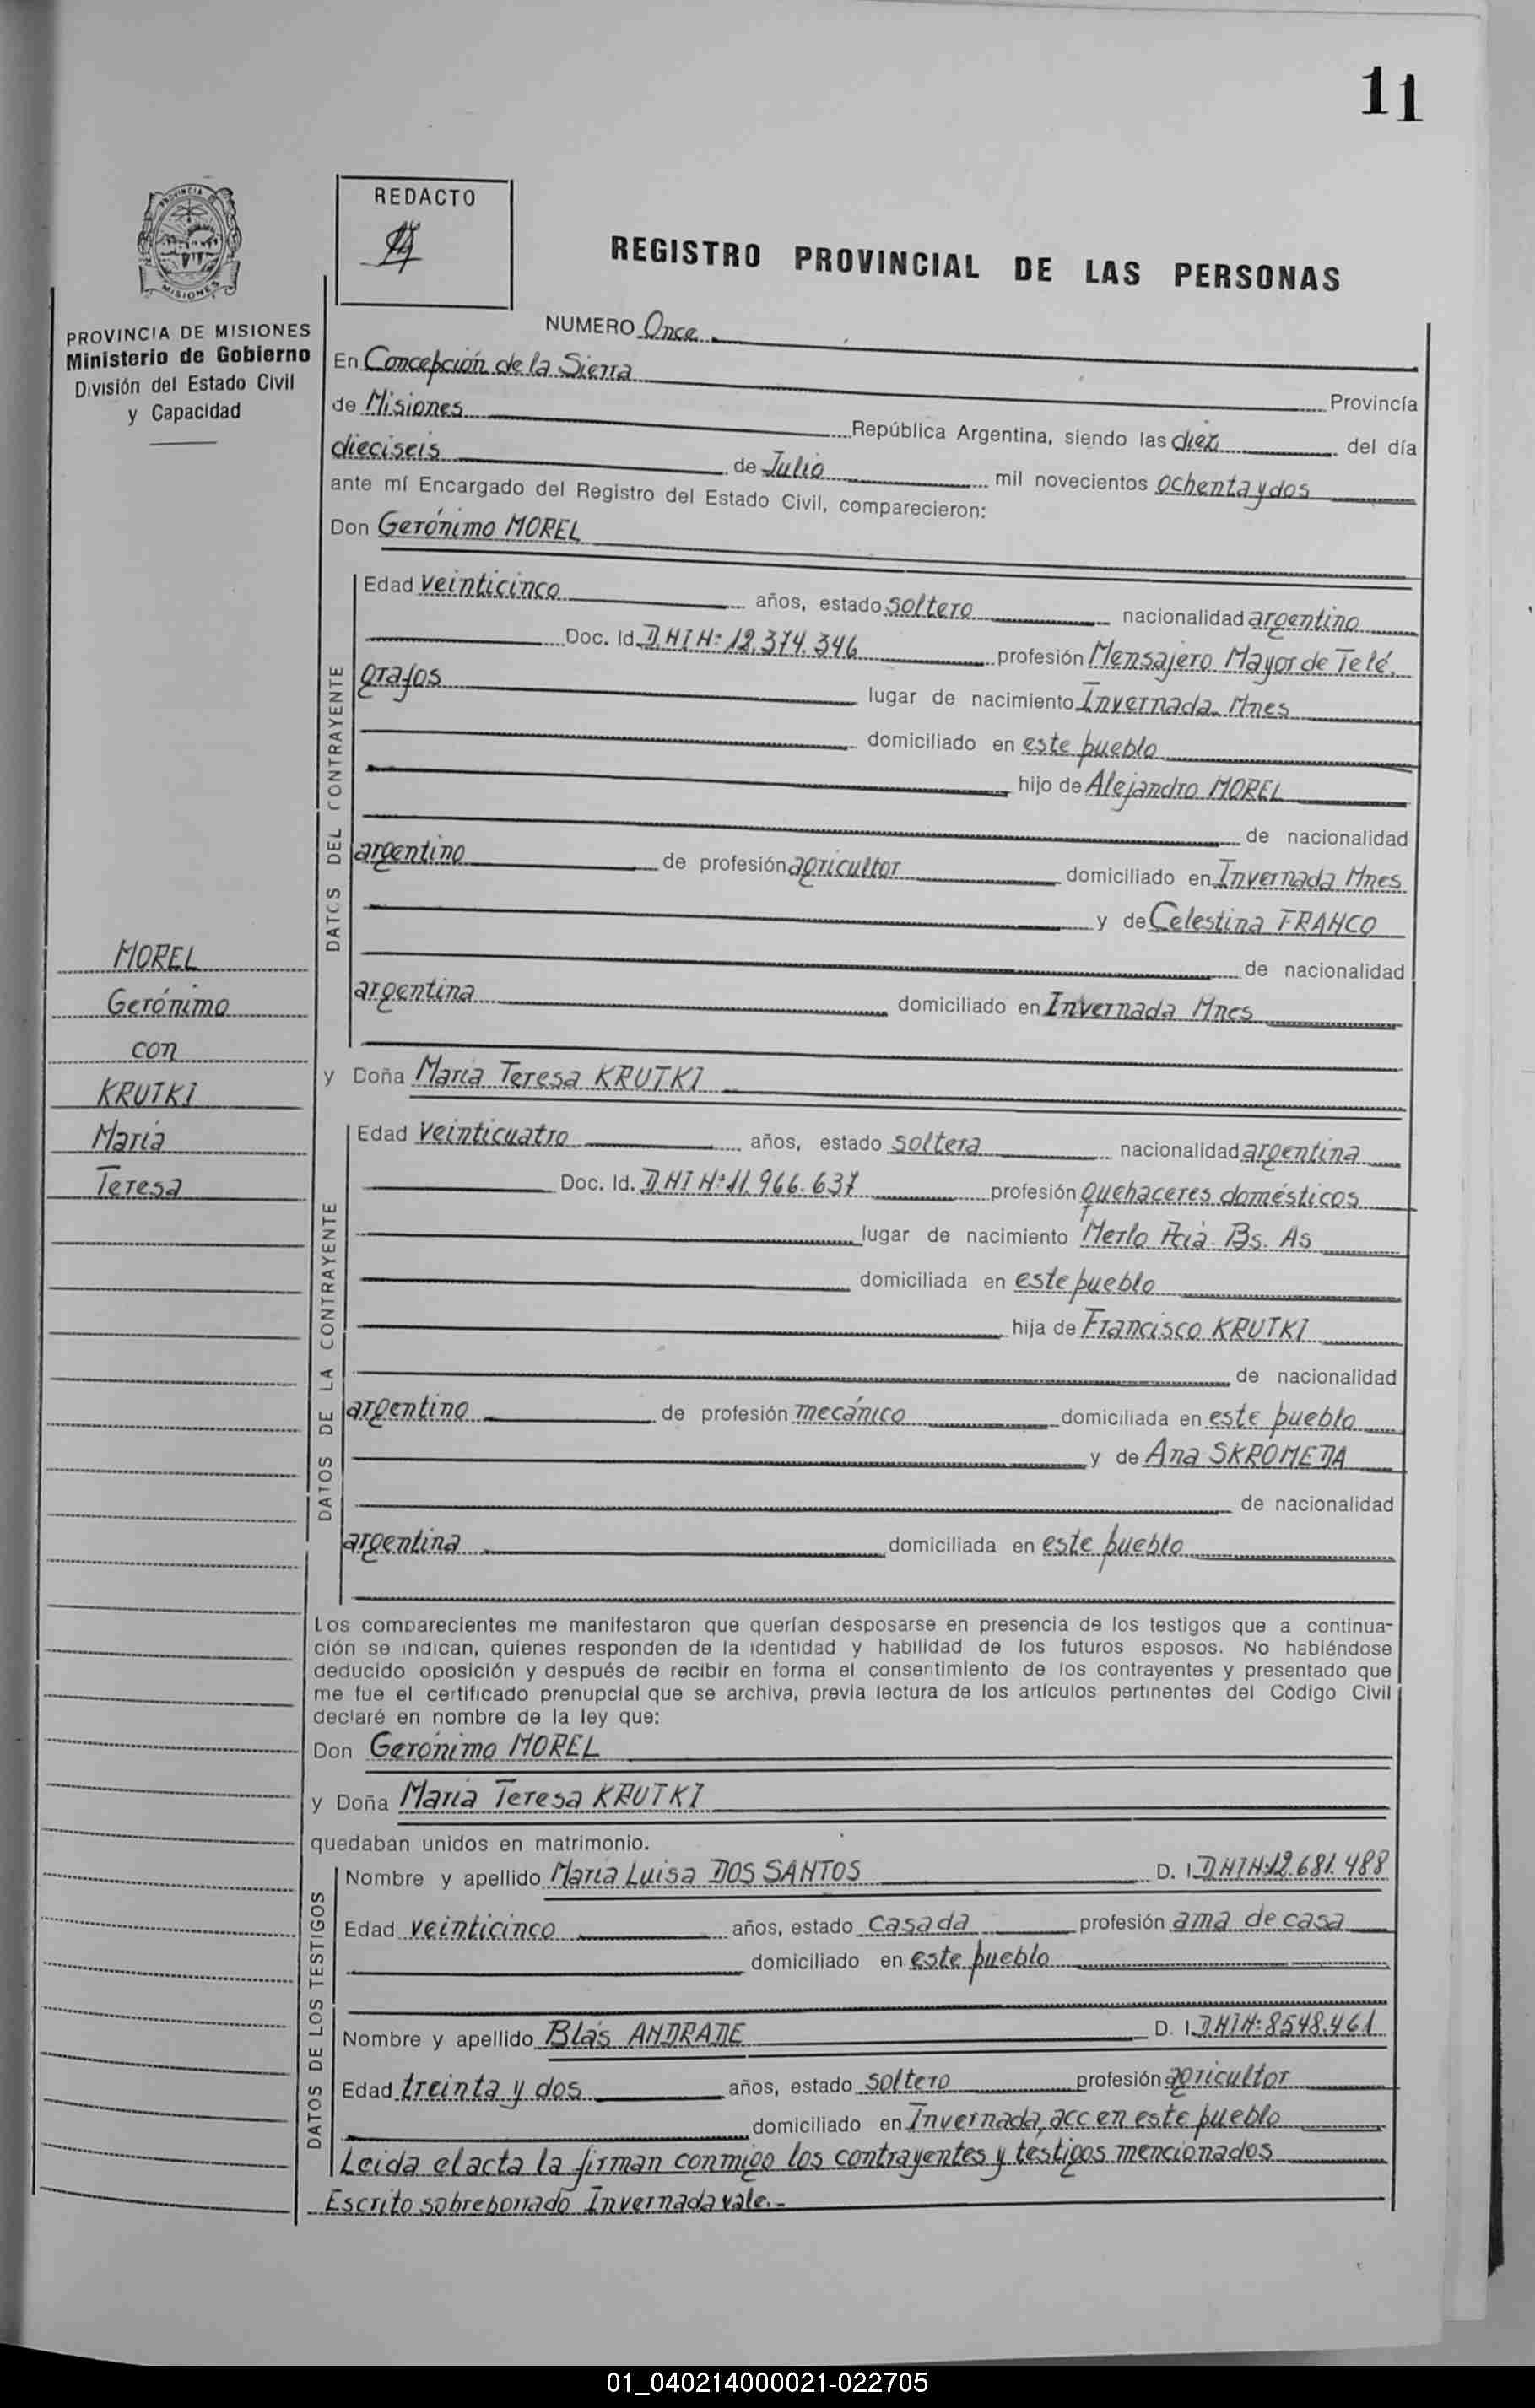 11
REDACTO
REGISTRO PROVINCIAL DE LAS PERSONAS
PROVINCIA DE MISIONES
Ministerio de Gobierno
División del Estado Civil
y Capacidad
NUMERO Once
En Concepción de la Sierra Provincia
de Misiones República Argentina, siendo las diez del día
dieciseis de Julio mil novecientos ochenta y dos
ante mí Encargado del Registro del Estado Civil, comparecieron:
Don Gerónimo MOREL
DATOS DEL CONTRAYENTE
Edad veinticinco años, estado soltero nacionalidad argentino
Doc. Id. DNI Nº 12.374.346 profesión Mensajero Mayor de Telé.
grafos lugar de nacimiento Invernada Mnes
domiciliado en este pueblo
hijo de Alejandro MOREL
de nacionalidad
argentino de profesión agricultor domiciliado en Invernada Mnes
y de Celestina FRANCO
de nacionalidad
argentina domiciliado en Invernada Mnes
MOREL
Gerónimo
con
KRUTKI
María
Teresa
y Doña María Teresa KRUTKI
DATOS DE LA CONTRAYENTE
Edad veinticuatro años, estado soltera nacionalidad argentina
Doc. Id. DNI Nº 11.966.637 profesión quehaceres domésticos
lugar de nacimiento Merlo Pcia. Bs. As
domiciliada en este pueblo
hija de Francisco KRUTKI
de nacionalidad
argentino de profesión mecánico domiciliada en este pueblo
y de Ana SKROMEDA
de nacionalidad
argentina domiciliada en este pueblo
Los comparecientes me manifestaron que querían desposarse en presencia de los testigos que a continua-
ción se indican, quienes responden de la identidad y habilidad de los futuros esposos. No habiéndose
deducido oposición y después de recibir en forma el consentimiento de los contrayentes y presentado que
me fue el certificado prenupcial que se archiva, previa lectura de los artículos pertinentes del Código Civil
declaré en nombre de la ley que:
Don Gerónimo MOREL
y Doña María Teresa KRUTKI
quedaban unidos en matrimonio.
DATOS DE LOS TESTIGOS
Nombre y apellido María Luisa DOS SANTOS D. I. DNI Nº 12.681.488
Edad veinticinco años, estado casada profesión ama de casa
domiciliado en este pueblo
Nombre y apellido Blás ANDRADE D. I. DNI Nº 8548.461
Edad treinta y dos años, estado soltero profesión agricultor
domiciliado en Invernada, acc en este pueblo
Leida el acta la firman conmigo los contrayentes y testigos mencionados
Escrito sobreborrado Invernada vale.-
01_040214000021-022705